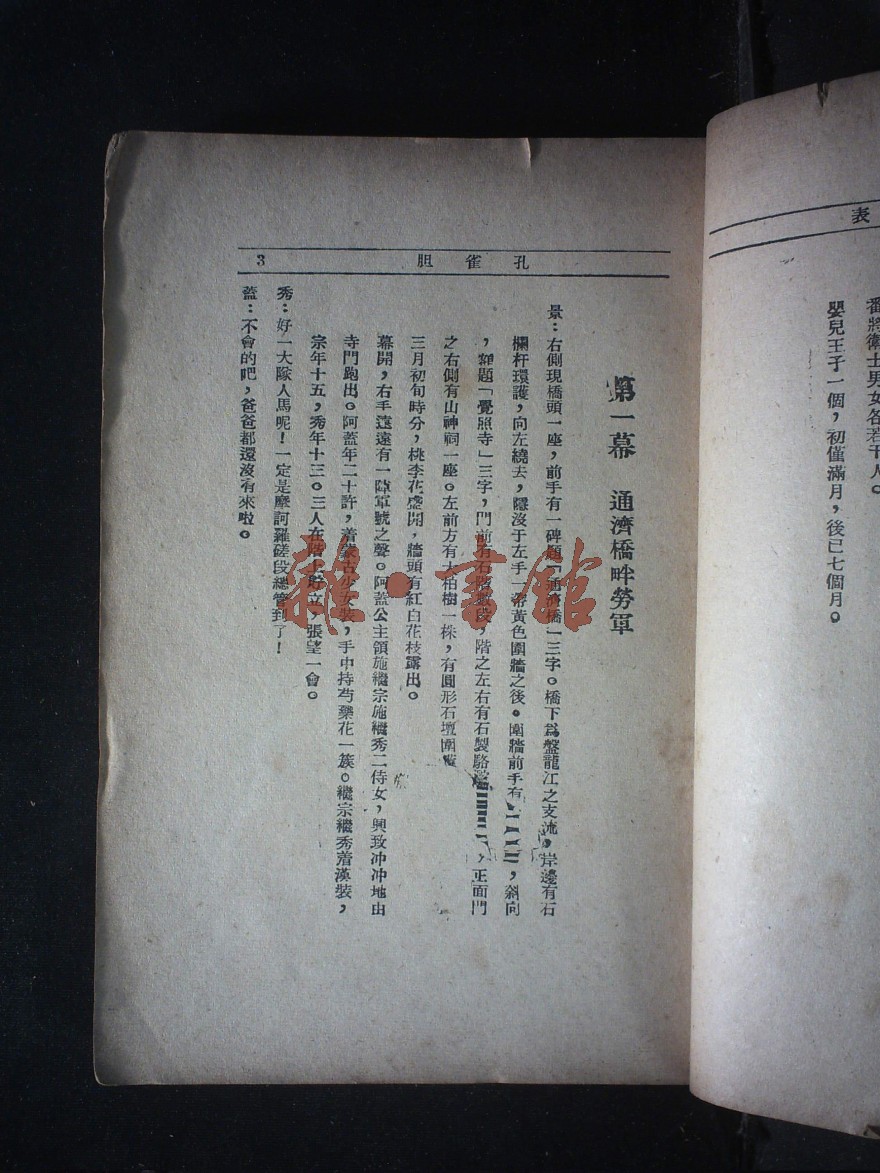 表
番將衛士男女各若干人。
嬰兒王子一個，初僅滿月，後已七個月。
孔雀胆
3
第一幕 通濟橋畔勞軍
景：右側現橋頭一座，前手有一碑題「通濟橋」三字。橋下爲盤龍江之支流，岸邊有石
欄杆環護，向左繞去，隱沒于左手一帶黃色圍牆之後。圍牆前手有，斜向
，額題「覺照寺」三字，門前有石階數段，階之左右有石製駱，正面門
之右側有山神祠一座。左前方有大柏樹一株，有圓形石壇圍護
三月初旬時分，桃李花盛開，牆頭有紅白花枝露出。
幕開，右手遠遠有一陣軍號之聲。阿蓋公主領施繼宗施繼秀二侍女，興致冲冲地由
寺門跑出。阿蓋年二十許，着蒙古少女裝，手中持芍藥花一簇。繼宗繼秀着漢裝，
宗年十五，秀年十三。三人在階上貯立，張望一會。
秀：好一大隊人馬呢！一定是摩訶羅磋段總管到了！
蓋：不會的吧，爸爸都還沒有來啦。
雜·書館